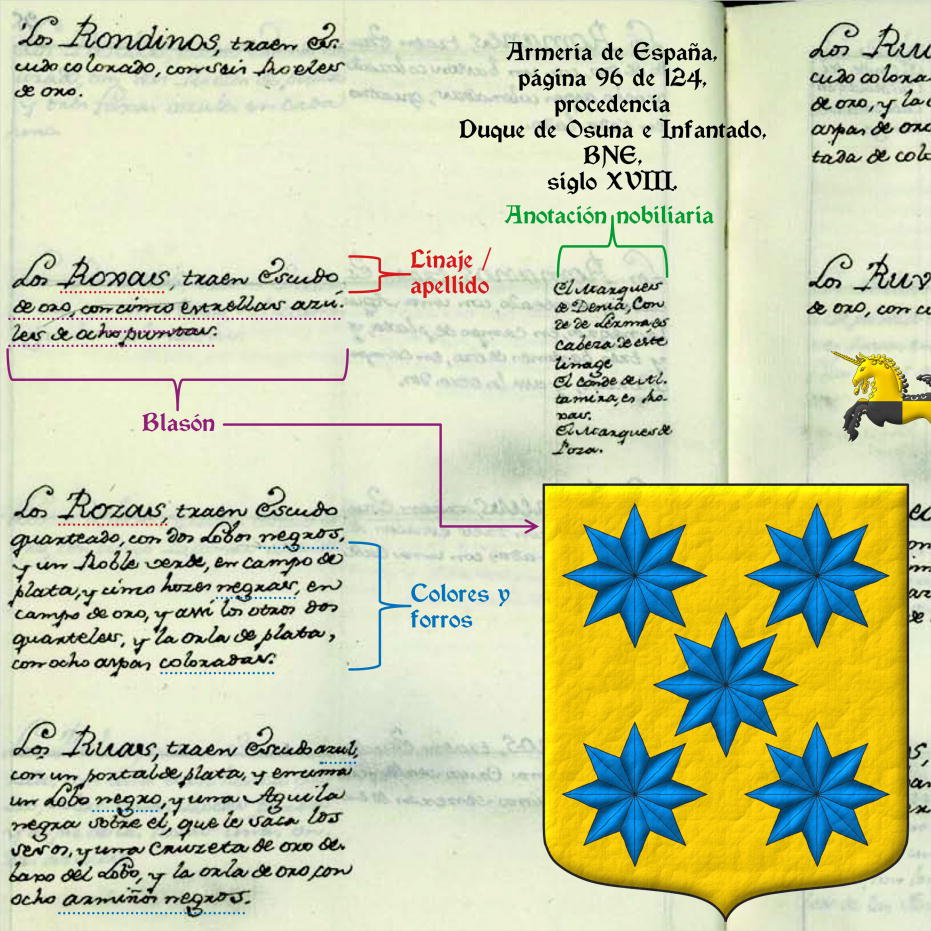 Los Rondinos, traen Es-
cudo colorado, con seis Roeles
de oro.
Armería de España,
página 96 de 124,
procedencia
Duque de Osuna e Infantado,
BNE,
siglo XVIII.
Anotación nobiliaria
Los Roxas, traen Escudo
de oro, con cinco estrellas azu-
les de ocho puntas.
Linaje /
apellido
El Marques
de Denia, Con
de de Lerma es
cabeza de este
linage
El conde de Al-
tamira, es Ro-
xas.
El Marques de
Poza.
Blasón
Los Rozas, traen Escudo
quarteado, con dos Lobos negros,
y un Roble verde, en campo de
plata, y cinco hozes negras, en
campo de oro, y assi los otros dos
quarteles, y la orla de plata,
con ocho aspas coloradas.
Colores y
forros
Los Ruas, traen Escudo azul,
con un portal de plata, y encima
un Lobo negro, y una Aguila
negra sobre el, que le saca los
sesos, y una Cruzeta de oro de-
baxo del Lobo, y la orla de oro con
ocho armiños negros.
Los
cudo
de oro, y la
aspas de
Los
de oro, con